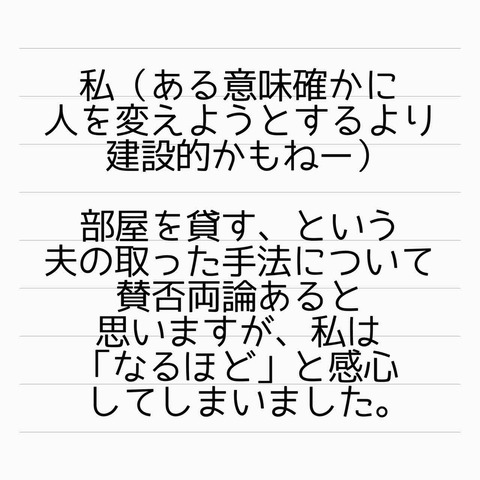 私（ある意味確かに
人を変えようとするより
建設的かもねー）
部屋を貸す、という
夫の取った手法について
賛否両論あると
思いますが、私は
「なるほど」と感心
してしまいました。